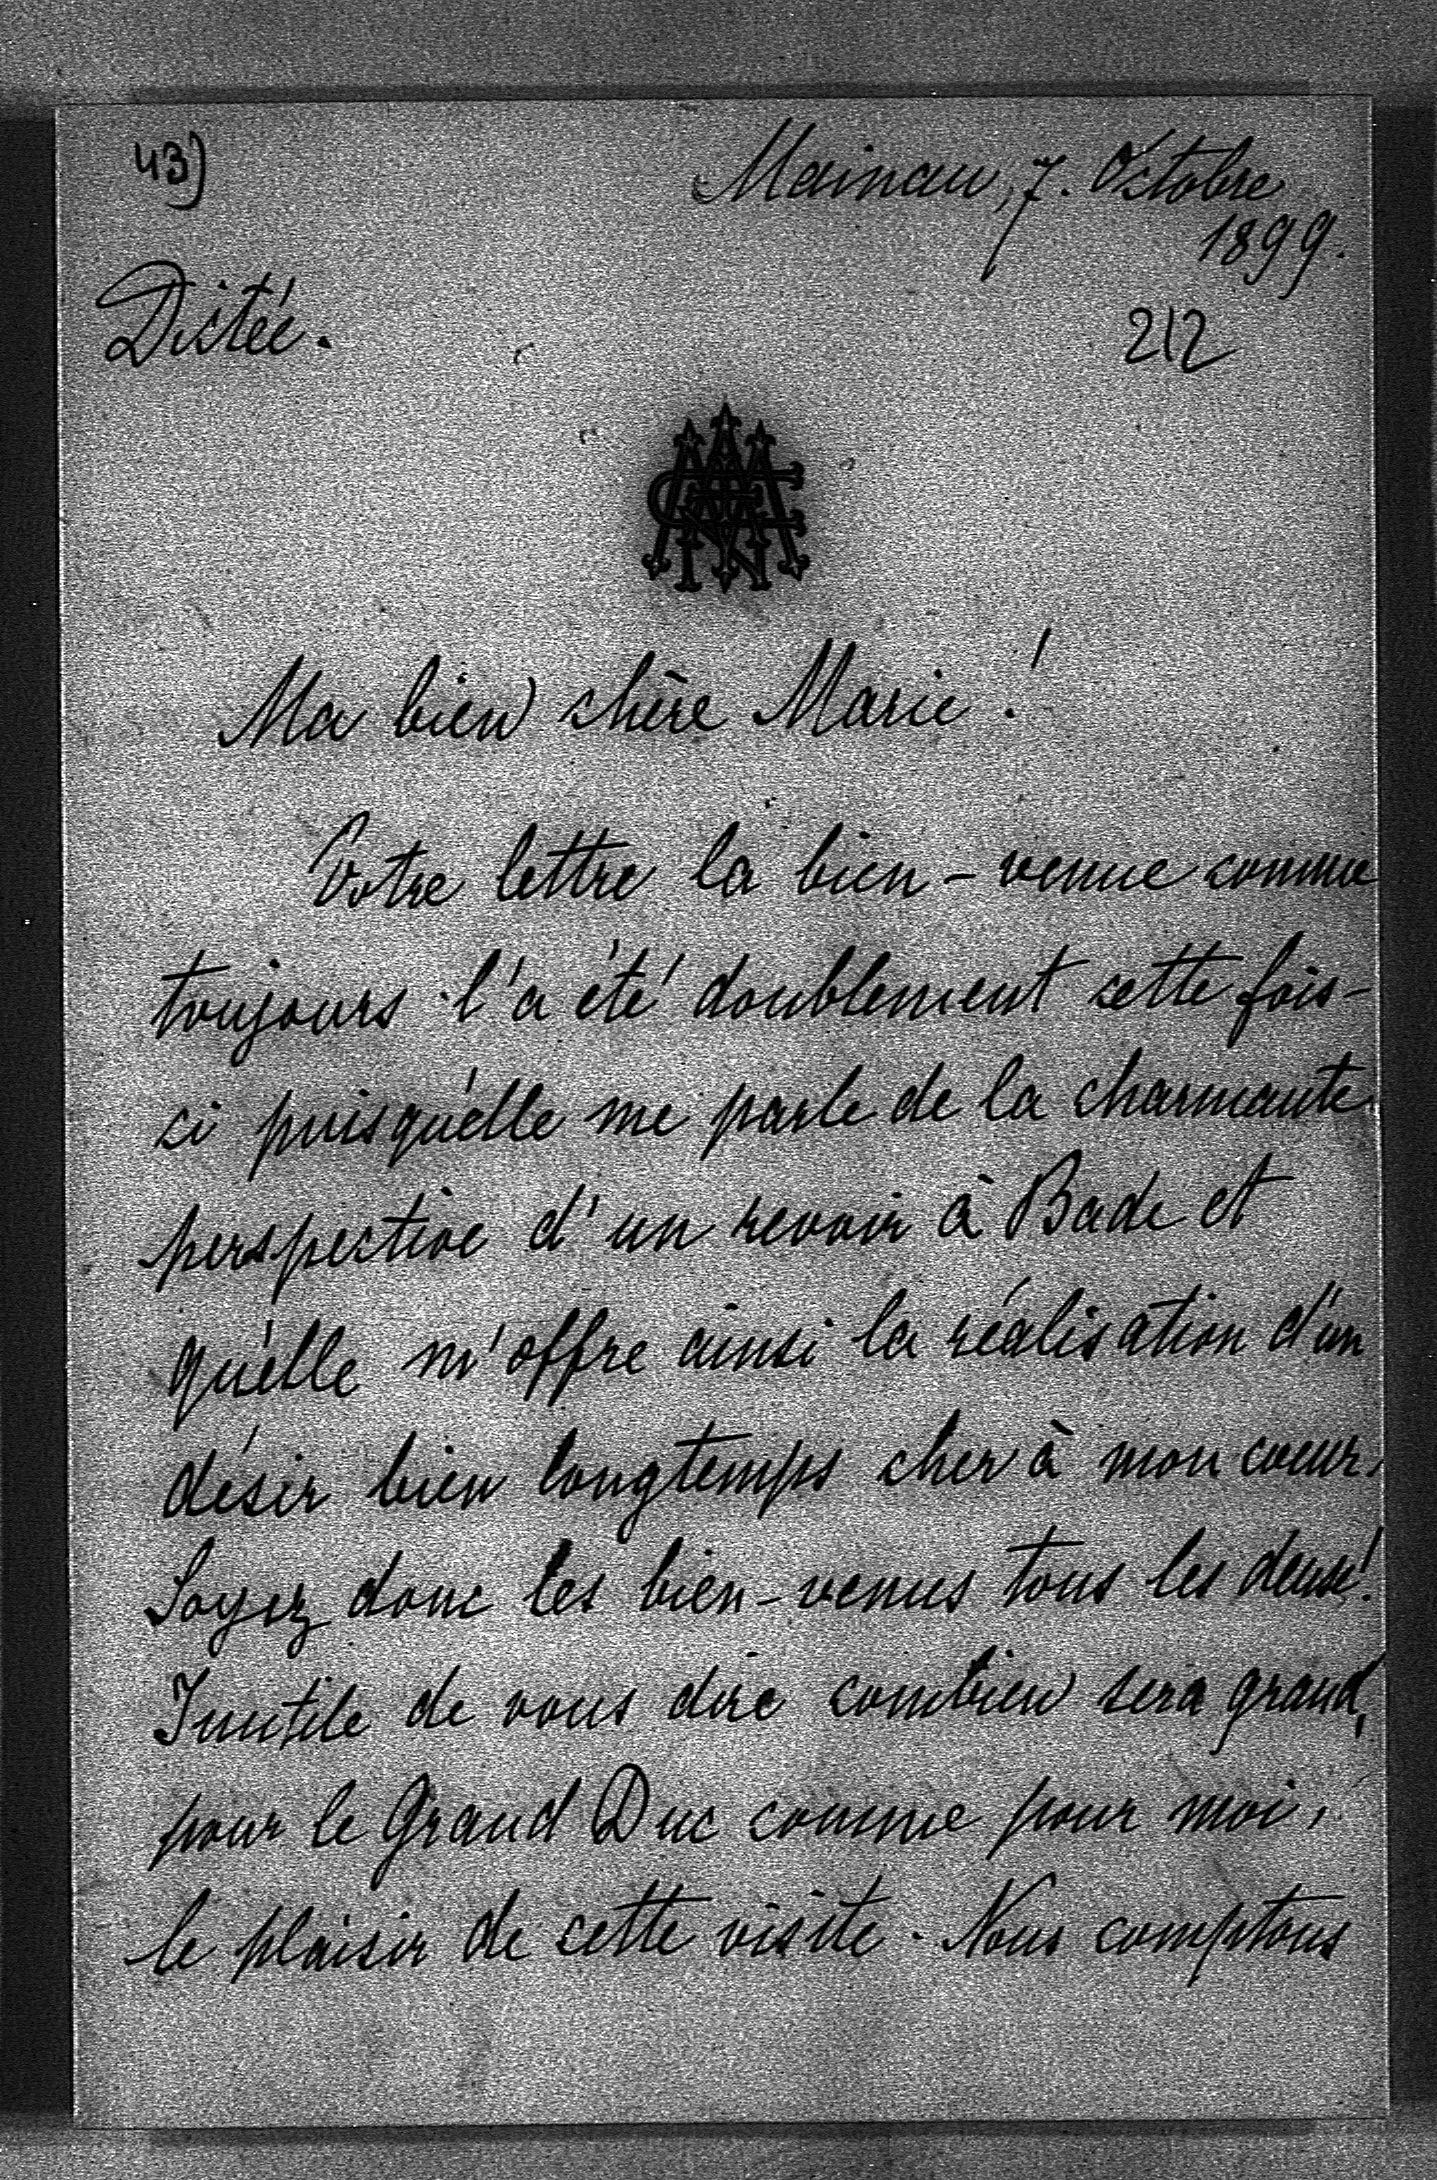 43)
Mainau, 7. Octobre
1899.
Dictée.
212
Ma bien chère Marie!
Votre lettre la bien-venue comme
toujours l'a été doublement cette fois-
ci puisqu'elle me parle de la charmante
perspective d'un revoir à Bade et
qu'elle m'offre ainsi la réalisation d'un
désir bien longtemps cher à mon coeur.
Soyez donc les bien-venus tous les deux!
Inutile de vous dire combien sera grand,
pour le Grand Duc comme pour moi,
le plaisir de cette visite. Nous comptons